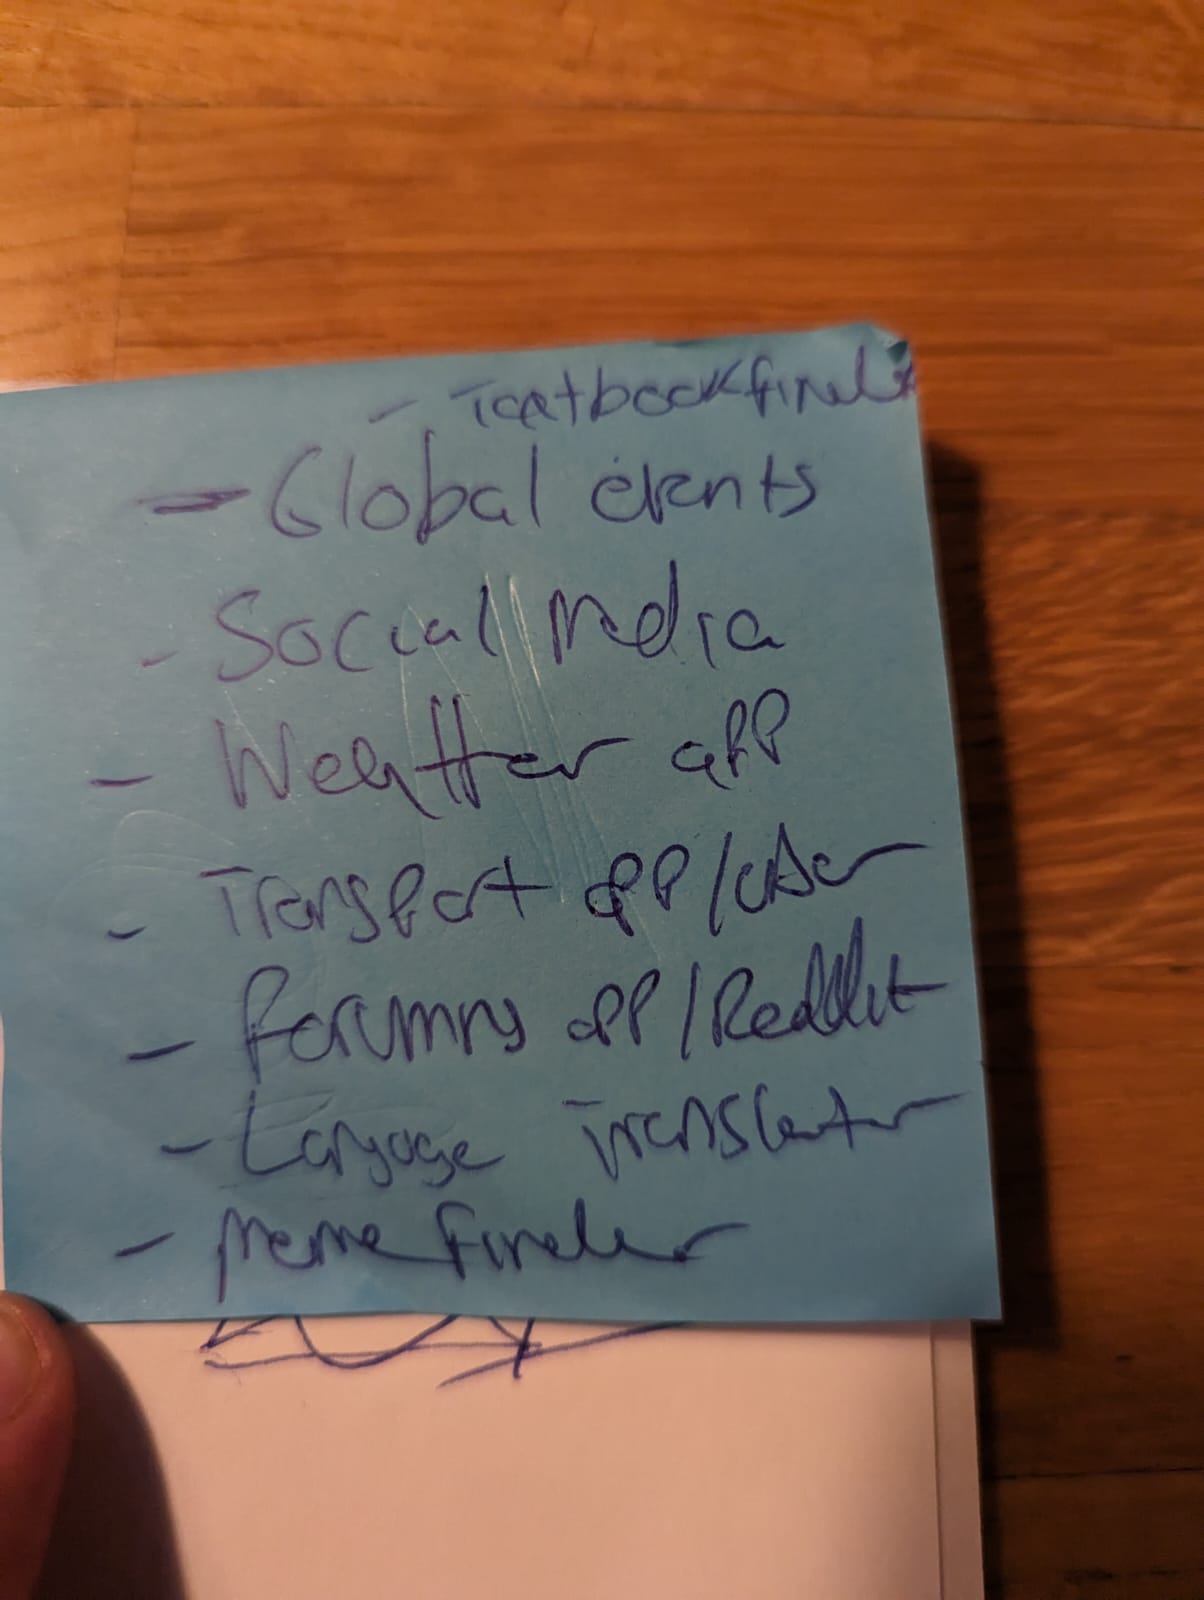 - Textbook finder
- Global events
- Social Media
- Weather app
- Transport app/uber
- Forums app/Reddit
- Language Translator
- Meme finder